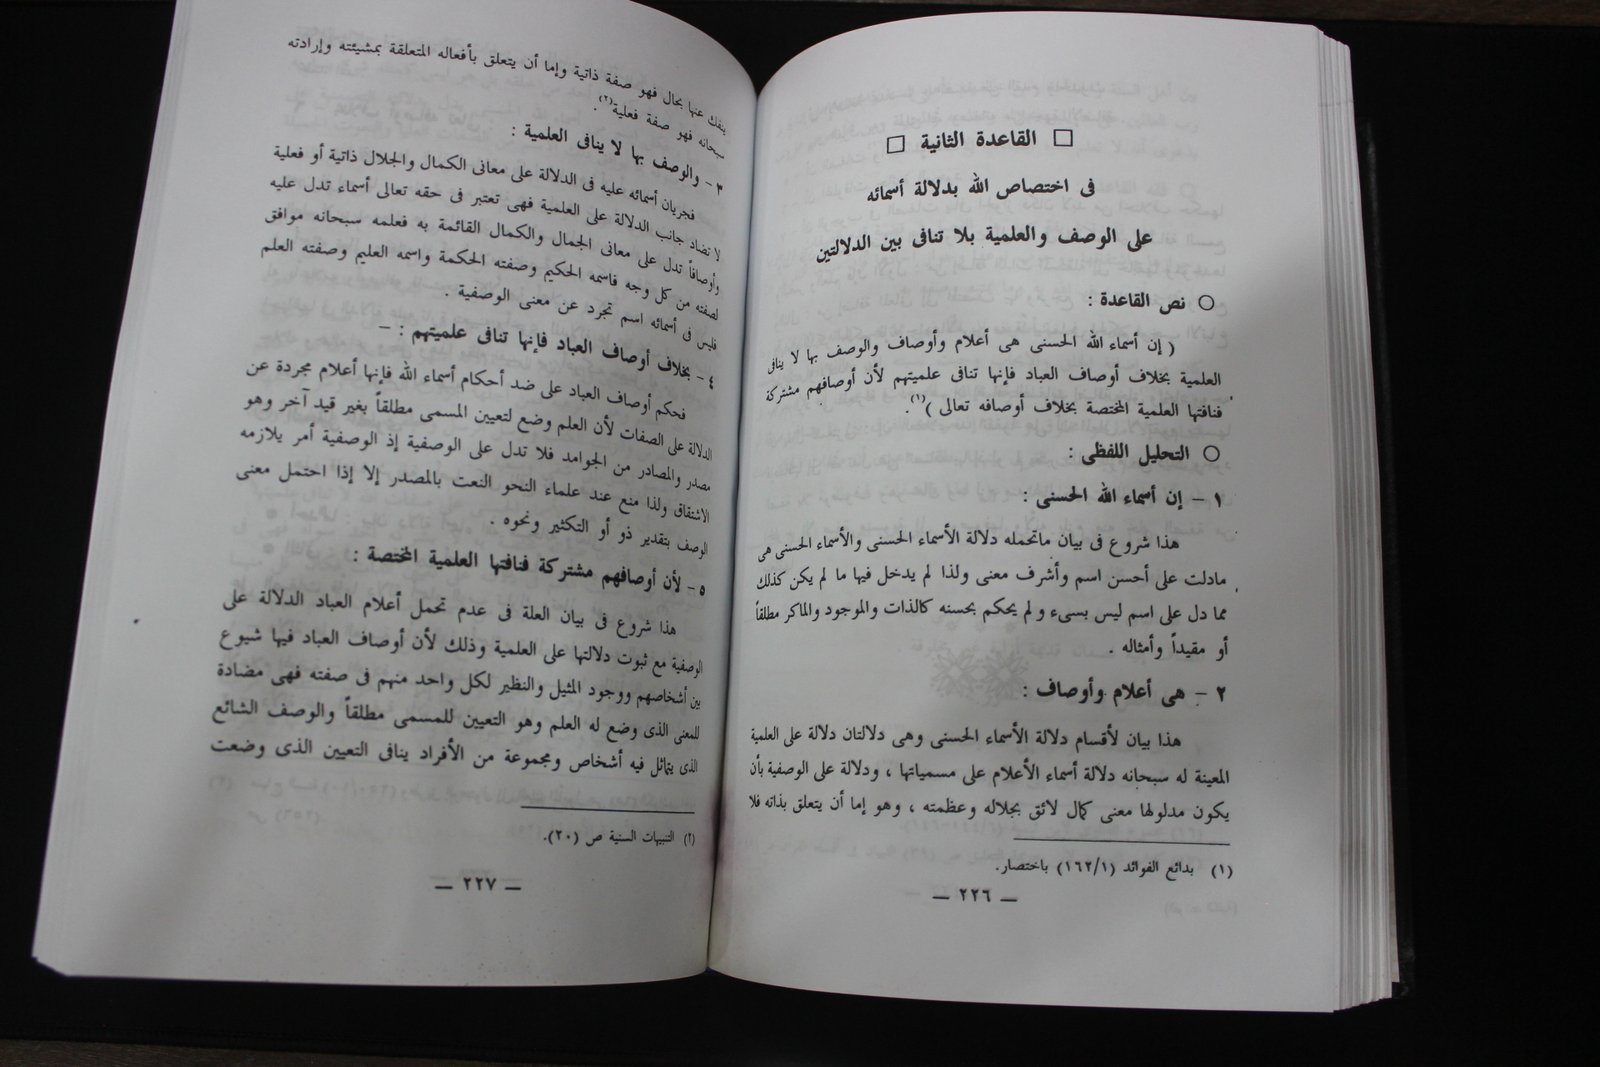 □ القاعدة الثانية □
فى اختصاص الله بدلالة أسمائه
على الوصف والعلمية بلا تنافى بين الدلالتين
○ نص القاعدة :
( إن أسماء الله الحسنى هى أعلام وأوصاف والوصف بها لا ينافى
العلمية بخلاف أوصاف العباد فإنها تنافى علميتهم لأن أوصافهم مشتركة
فنافتها العلمية المختصة بخلاف أوصافه تعالى )(١).
○ التحليل اللفظى :
١ - إن أسماء الله الحسنى :
هذا شروع فى بيان ماتحمله دلالة الأسماء الحسنى والأسماء الحسنى هى
مادلت على أحسن اسم وأشرف معنى ولذا لم يدخل فيها ما لم يكن كذلك
مما دل على اسم ليس بسىء ولم يحكم بحسنه كالذات والموجود والماكر مطلقاً
أو مقيداً وأمثاله .
٢ - هى أعلام وأوصاف :
هذا بيان لأقسام دلالة الأسماء الحسنى وهى دلالتان دلالة على العلمية
المعينة له سبحانه دلالة أسماء الأعلام على مسمياتها ، ودلالة على الوصفية بأن
يكون مدلولها معنى كمال لائق بجلاله وعظمته ، وهو إما أن يتعلق بذاته فلا
(١) بدائع الفوائد (١٦٢/١) باختصار.
— ٢٢٦ —
ينفك عنها بحال فهو صفة ذاتية وإما أن يتعلق بأفعاله المتعلقة بمشيئته وإرادته
سبحانه فهو صفة فعلية(٢).
٣ - والوصف بها لا ينافى العلمية :
فجريان أسمائه عليه فى الدلالة على معانى الكمال والجلال ذاتية أو فعلية
لا تضاد جانب الدلالة على العلمية فهى تعتبر فى حقه تعالى أسماء تدل عليه
وأوصافاً تدل على معانى الجمال والكمال القائمة به فعلمه سبحانه موافق
لصفته من كل وجه فاسمه الحكيم وصفته الحكمة واسمه العليم وصفته العلم
فليس فى أسمائه اسم تجرد عن معنى الوصفية .
٤ - بخلاف أوصاف العباد فإنها تنافى علميتهم : -
فحكم أوصاف العباد على ضد أحكام أسماء الله فإنها أعلام مجردة عن
الدلالة على الصفات لأن العلم وضع لتعيين المسمى مطلقاً بغير قيد آخر وهو
مصدر والمصادر من الجوامد فلا تدل على الوصفية إذ الوصفية أمر يلازمه
الاشتقاق ولذا منع عند علماء النحو النعت بالمصدر إلا إذا احتمل معنى
الوصف بتقدير ذو أو التكثير ونحوه .
٥ - لأن أوصافهم مشتركة فنافتها العلمية المختصة :
هذا شروع فى بيان العلة فى عدم تحمل أعلام العباد الدلالة على
الوصفية مع ثبوت دلالتها على العلمية وذلك لأن أوصاف العباد فيها شيوع
بين أشخاصهم ووجود المثيل والنظير لكل واحد منهم فى صفته فهى مضادة
للمعنى الذى وضع له العلم وهو التعيين للمسمى مطلقاً والوصف الشائع
الذى يتماثل فيه أشخاص ومجموعة من الأفراد ينافى التعيين الذى وضعت
(٢) التنبيهات السنية ص (٢٠).
— ٢٢٧ —